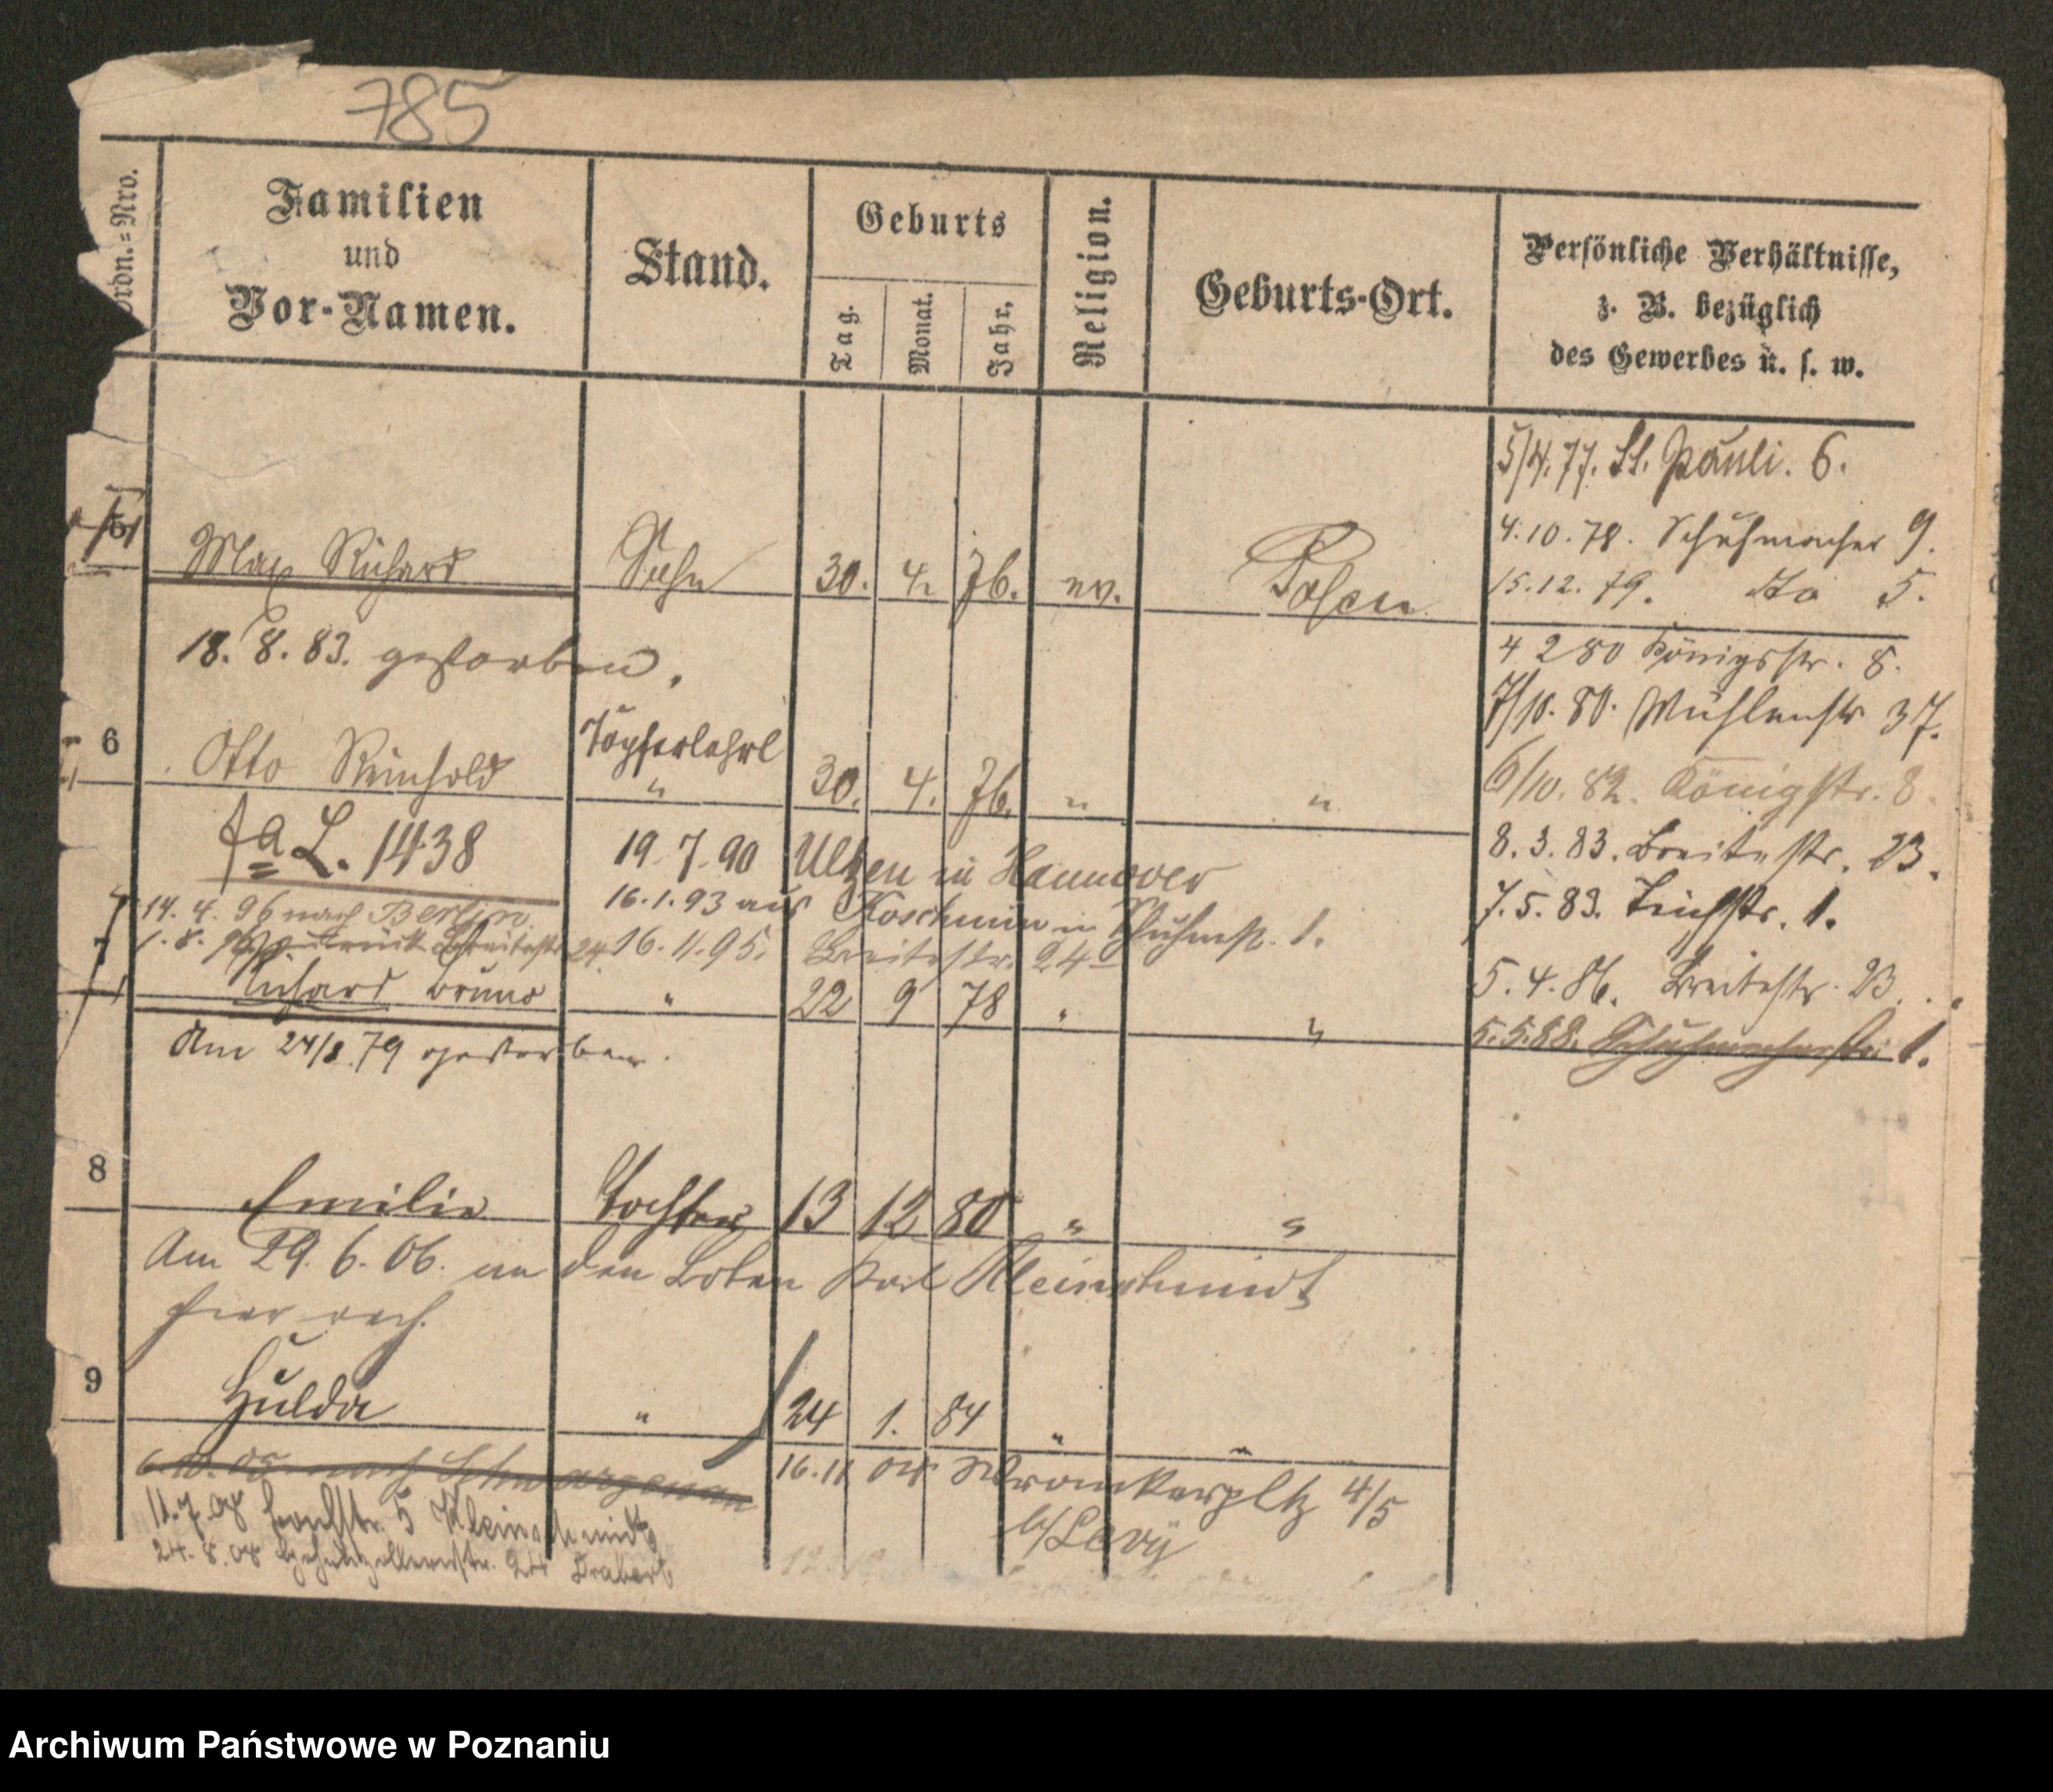 785
Ordn.=Nro.
Familien
und
Vor-Namen.
Stand.
Geburts
Tag.
Monat.
Jahr.
Religion.
Geburts-Ort.
Persönliche Verhältnisse,
z. B. bezüglich
des Gewerbes u. s. w.
5/4.77. St. Pauli. 6.
4.10.78. Schuhmacher 9.
15.12.79. do 5.
4 2 80 Königsstr. 8.
7/10.80. Mühlenstr 37.
6/10.82. Königstr. 8.
8.3.83. Breitestr. 23.
7.5.83. Teichstr. 1.
5.4.86. Breitestr. 23.
5.5.88. Schuhmacherstr. 1.
5 Max Richard Sohn 30. 4. 76. ev. Posen
18.8.83. gestorben.
6 Otto Reinhold Töpferlehrl " 30. 4. 76. " "
fa L. 1438 19.7.90 Ulzen in Hannover
16.1.93 aus Koschmin n Schuhmstr. 1.
14.4.96 nach Berlin.
1.8.96 zurück Breitestr 24 16.11.95. Breitestr. 24
7 Richard Bruno " 22 9 78 " "
Am 24/8 79 gestorben.
8 Emilie Tochter 13 12 80 " "
Am 29.6.06. an den Boten Karl Kleinschmidt
hier verh.
9 Hulda " 24 1. 84 " "
nach Schwarzenau
16.11 04 Wronkerpltz 4/5
b/ Levy
11.7.08 5 Kleinschmidt
24.8.08 Hohenzollernstr. 24
Archiwum Państwowe w Poznaniu